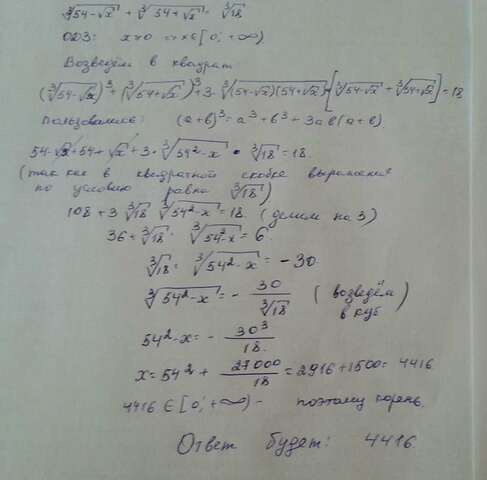 ∛(54-√x) + ∛(54+√x) = ∛18
ОДЗ: x≥0 => x∈[0; +∞)
Возведём в квадрат
(∛(54-√x))³ + (∛(54+√x))³ + 3·∛((54-√x)(54+√x))·[∛(54-√x) + ∛(54+√x)] = 18
пользование: (a+b)³ = a³ + b³ + 3ab(a+b).
54-√x+54+√x+3·∛(54²-x)·∛18 = 18.
(так как в квадратной скобке выражение
по условию равна ∛18)
108+3∛18 ∛(54²-x) = 18. (делим на 3)
36+∛18·∛(54²-x) = 6.
∛18·∛(54²-x) = -30.
∛(54²-x) = -30/∛18 (возведём в куб)
54²-x = -30³/18.
x = 54² + 27000/18 = 2916+1500 = 4416
4416 ∈ [0; +∞) - поэтому корень.
Ответ будет: 4416.